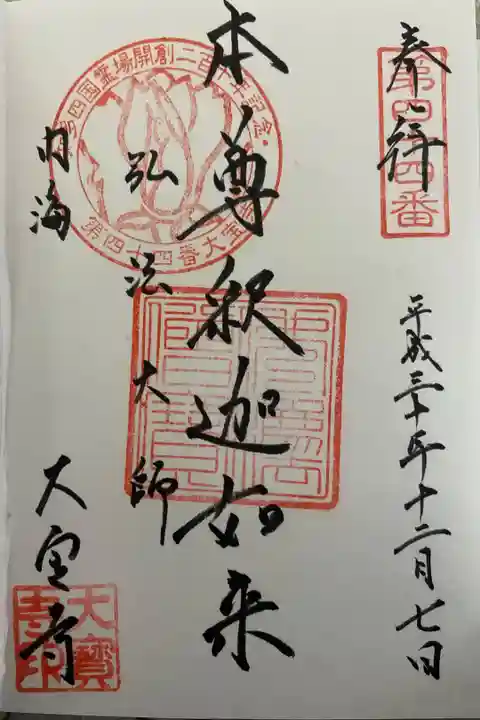 第四十四番
奉拝
平成三十年十二月七日
本尊釈迦如来
弘法大師
四国霊場開創二百十年記念
第四十四番大宝寺
内海
大宝寺
大寳寺印